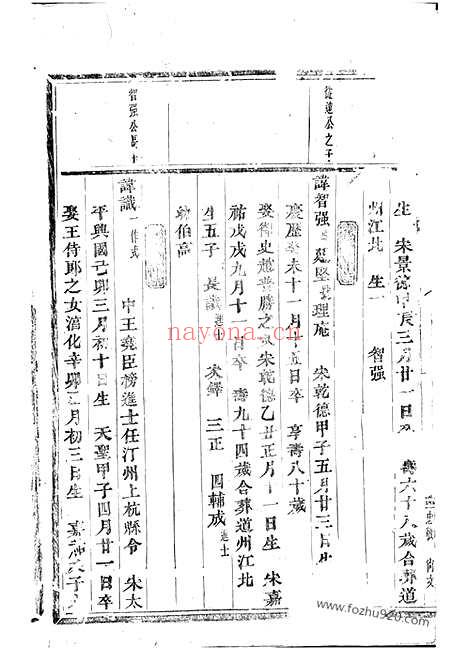 從遠公之子
生 宋景德甲辰三月廿一日 壽六十八歲合葬道
州江北 生一 智强
諱智强 廷堅 理庵 宋乾德甲子五月廿三日生
慶歷癸未十一月 五日卒 享壽八十歲
娶御史趙普勝之 宋乾德乙丑正月十一日生 宋嘉
祐戊戌九月十一日卒 壽九十四歲合葬道州江北
生五子 長識進士 次鐸 三正 四輔成進士
幼伯高
智强公長子
諱識 一作式 中王堯臣榜進士任汀州上杭縣令 宋太
平興國己卯三月初十日生 天聖甲子四月廿一日卒
娶王侍郎之女淯化辛卯三月初三日生 嘉
nayona.cn
www.fozhu920.com